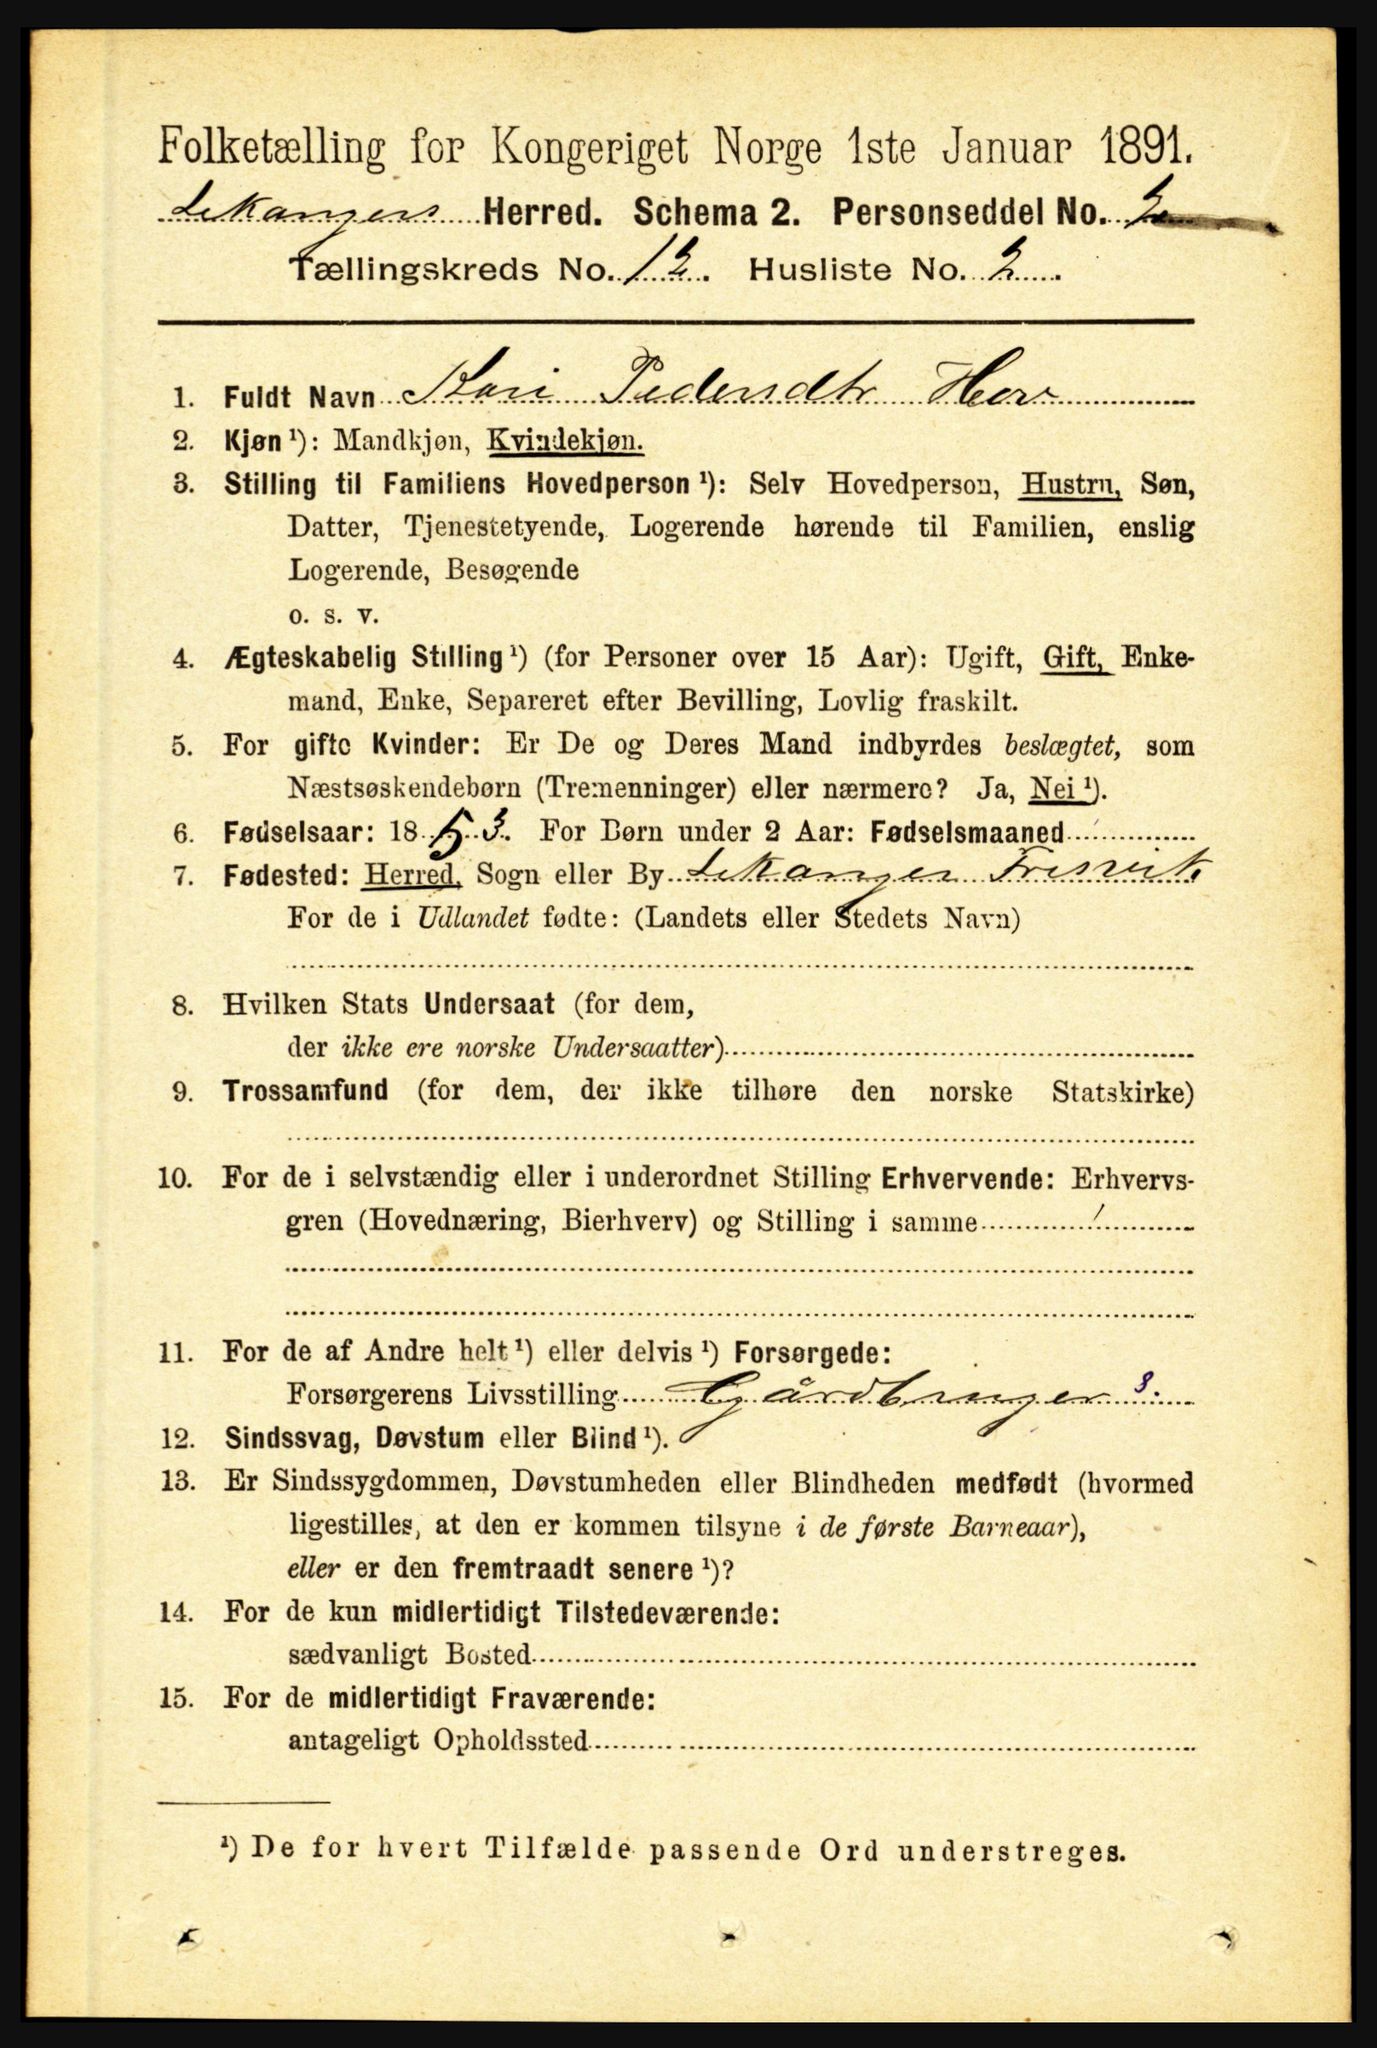 Folketælling for Kongeriget Norge 1ste Januar 1891.
Lekangers Herred. Schema 2. Personseddel No. 2
Tællingskreds No. 12. Husliste No. 2.
1. Fuldt Navn Kari Pedersdtr
2. Kjøn ¹): Mandkjøn, Kvindekjøn.
3. Stilling til Familiens Hovedperson ¹): Selv Hovedperson, Hustru, Søn,
Datter, Tjenestetyende, Logerende hørende til Familien, enslig
Logerende, Besøgende
o. s. v.
4. Ægteskabelig Stilling ¹) (for Personer over 15 Aar): Ugift, Gift, Enke-
mand, Enke, Separeret efter Bevilling, Lovlig fraskilt.
5. For gifte Kvinder: Er De og Deres Mand indbyrdes beslægtet, som
Næstsøskendebørn (Tremenninger) eller nærmere? Ja, Nei ¹).
6. Fødselsaar: 1853. For Børn under 2 Aar: Fødselsmaaned
7. Fødested: Herred, Sogn eller By Lekanger Fresvik.
For de i Udlandet fødte: (Landets eller Stedets Navn)
8. Hvilken Stats Undersaat (for dem,
der ikke ere norske Undersaatter)
9. Trossamfund (for dem, der ikke tilhøre den norske Statskirke)
10. For de i selvstændig eller i underordnet Stilling Erhvervende: Erhvervs-
gren (Hovednæring, Bierhverv) og Stilling i samme
11. For de af Andre helt ¹) eller delvis ¹) Forsørgede:
Forsørgerens Livsstilling Gårdbruger
12. Sindssvag, Døvstum eller Blind ¹).
13. Er Sindssygdommen, Døvstumheden eller Blindheden medfødt (hvormed
ligestilles, at den er kommen tilsyne i de første Barneaar),
eller er den fremtraadt senere ¹)?
14. For de kun midlertidigt Tilstedeværende:
sædvanligt Bosted
15. For de midlertidigt Fraværende:
antageligt Opholdssted
¹) De for hvert Tilfælde passende Ord understreges.